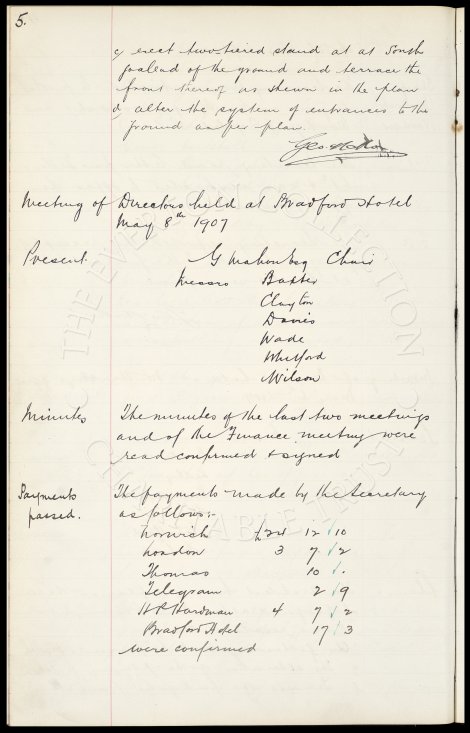 5.
c, erect two-tiered stand at at South
goalend of the ground and terrace the
front thereof as shewn in the plan
d, alter the system of entrances to the
ground as per plan.
Geo Mahon
Meeting of Directors held at Bradford Hotel
May 8th 1907
Present. G Mahon Esq Chair
Messrs Baxter
Clayton
Davies
Wade
Whitford
Wilson
Minutes The minutes of the last two meetings
and of the Finance meeting were
read confirmed & signed
Payments The payments made by the Secretary
passed. as follows:-
Norwich £24 12 10
London 3 7 2
Thomas 10 .
Telegram 2 9
H P Hardman 4 7 2
Bradford Hotel 17 3
were confirmed
THE EVERTON COLLECTION
CHARITABLE TRUST